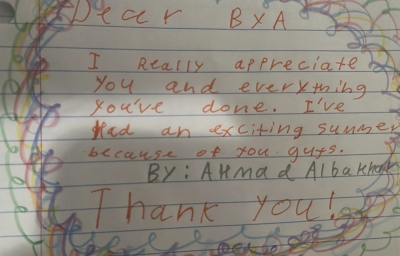 Dear BXA
I Really appreciate
you and everything
you've done. I've
Had an exciting summer
because of you guys.
BY: AHmad Albakhan
Thank you!